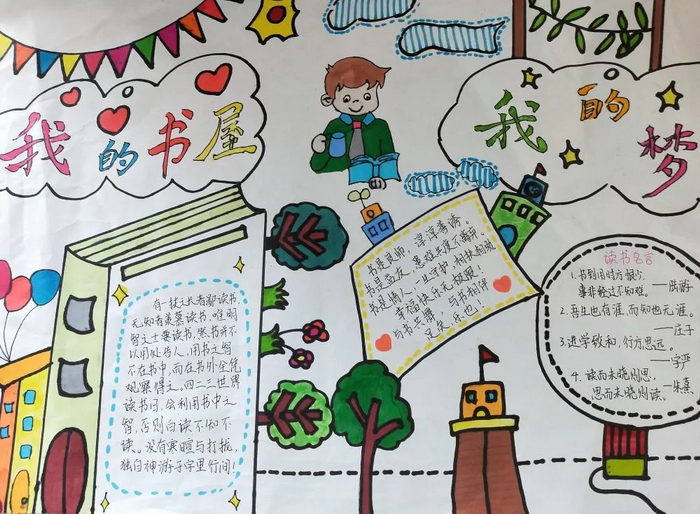 我的书屋
我的梦
有一技之长者鄙读书,
无知者羡慕读书,唯明
智之士要读书,然书并不
以用处告人,用书之智
不在书中,而在书外全凭
观察得之。
读书间,会利用书中之
智,否则白读不如不
读。没有寒暄与打扰,
独自神游于字里行间!
书是良师,谆谆善诱。
书是益友,患难共度不离弃。
书是情人,一旦守护,相扶相携
幸福快乐无极限!
与书共舞,与书相伴
足矣乐也!
读书名言
1. 书到用时方恨少,
事非经过不知难。——陆游
2. 吾生也有涯,而知也无涯。
——庄子
3. 进学致和,行方思远。
4. 读而未晓则思,
思而未晓则读。——朱熹